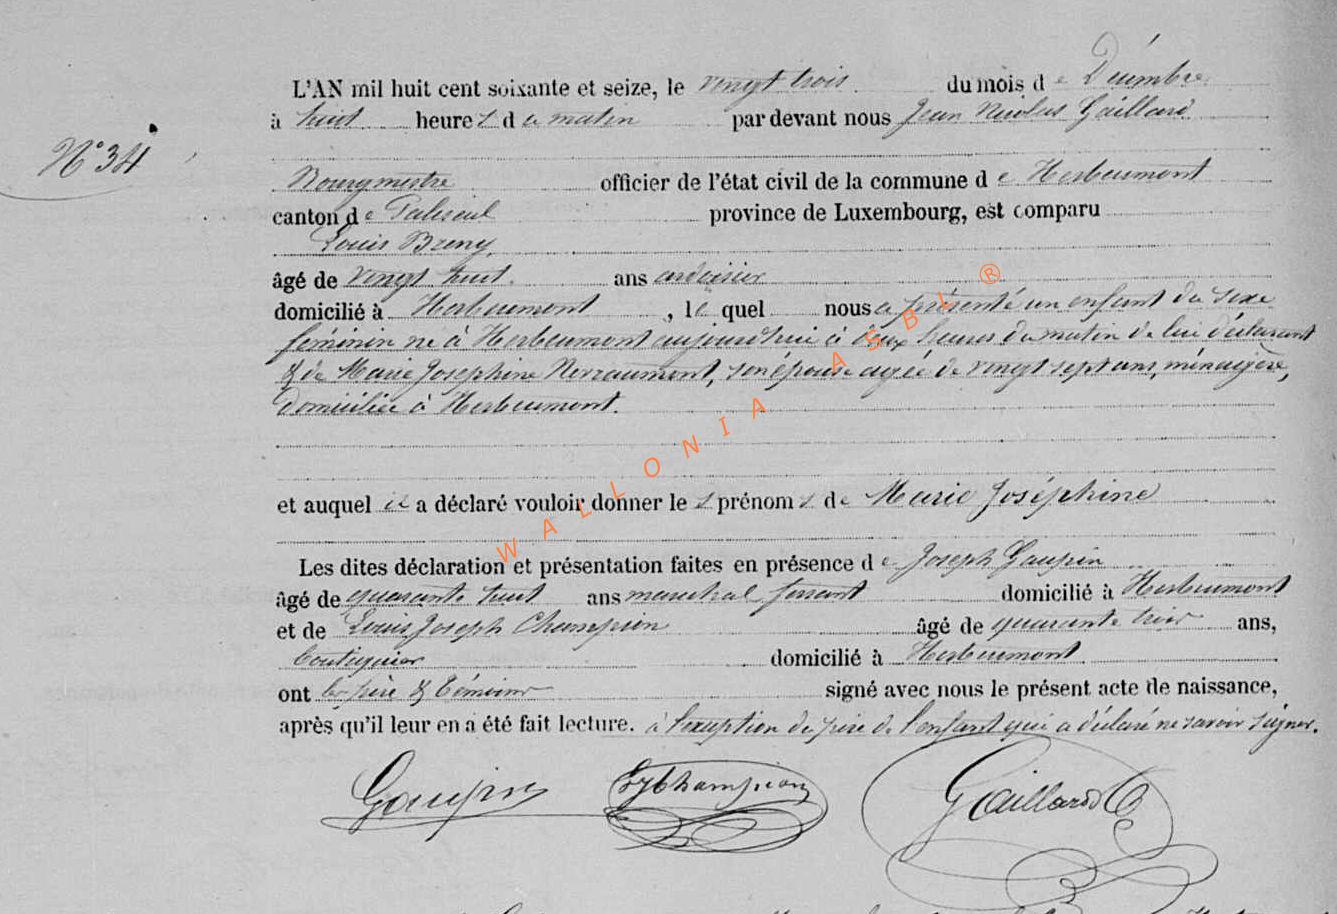 L'AN mil huit cent soixante et seize, le vingt trois du mois de Décembre
à huit heures du matin par devant nous Jean Nicolas Gaillard
N° 34
Bourgmestre officier de l'état civil de la commune de Herbeumont
canton de Paliseul province de Luxembourg, est comparu
Louis Breny
âgé de vingt huit ans ardoisier
domicilié à Herbeumont, le quel nous a présenté un enfant du sexe
féminin né à Herbeumont aujourd'hui à deux heures du matin de lui déclarant
& de Marie Josephine, son épouse agée de vingt sept ans, ménagère,
domiciliée à Herbeumont.
et auquel il a déclaré vouloir donner les prénoms de Marie Joséphine
Les dites déclaration et présentation faites en présence de Joseph Goupin
âgé de quarante huit ans marechal ferrant domicilié à Herbeumont
et de Louis Joseph Champion âgé de quarante trois ans,
boutiquier domicilié à Herbeumont
ont les père & témoins signé avec nous le présent acte de naissance,
après qu'il leur en a été fait lecture. à l'exception du père de l'enfant qui a déclaré ne savoir signer.
Goupin Champion Gaillard
WALLONIA ASBL ®